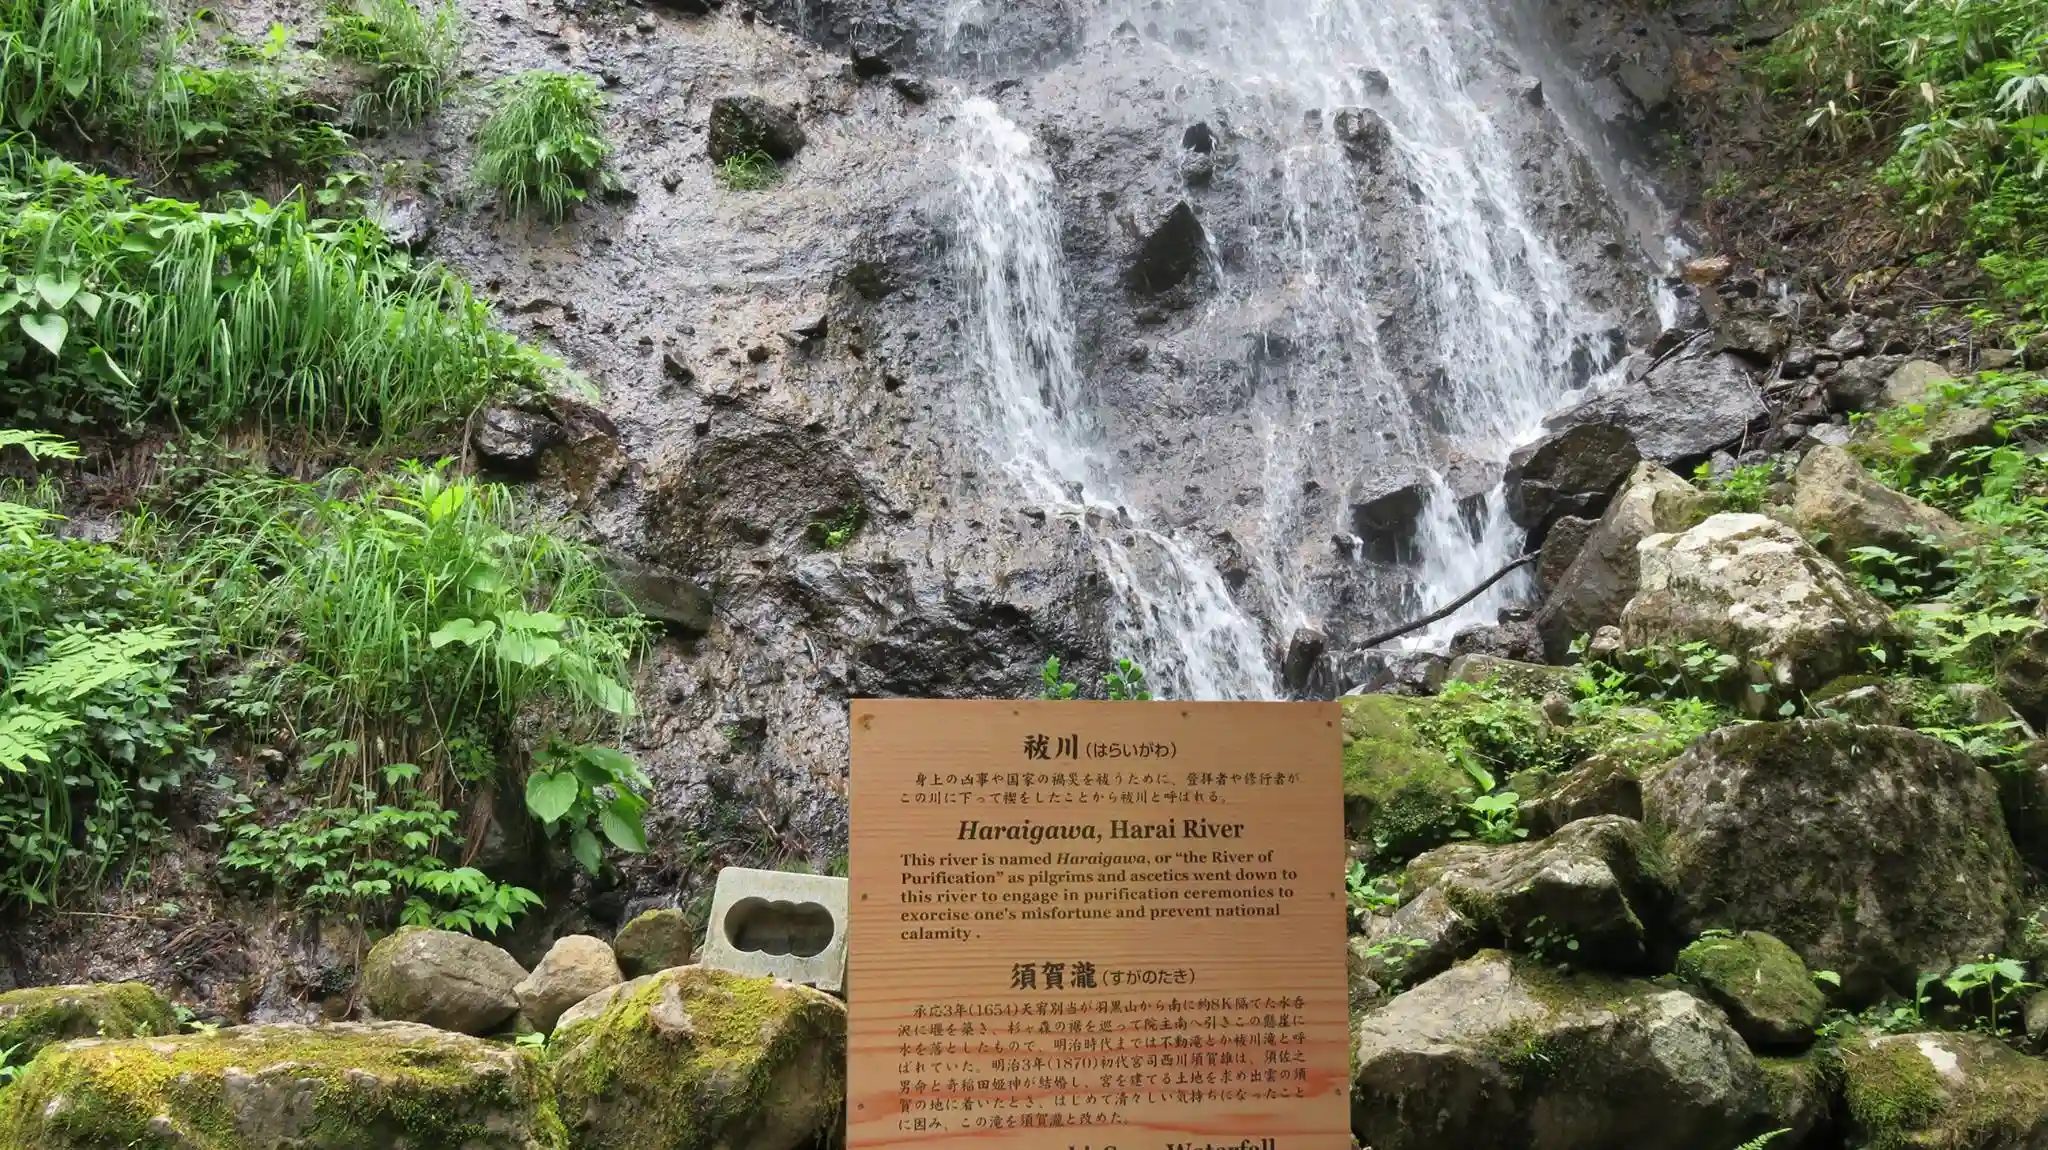 祓川(はらいがわ)
身上の凶事や国家の禍災を祓うために、登拝者や修行者が
この川に下って禊をしたことから祓川と呼ばれる。
Haraigawa, Harai River
This river is named Haraigawa, or “the River of
Purification” as pilgrims and ascetics went down to
this river to engage in purification ceremonies to
exorcise one's misfortune and prevent national
calamity .
須賀瀧(すがのたき)
承応3年(1654)天宥別当が羽黒山から南に約8K隔てた水呑
沢に堰を築き、杉ヶ森の裾を巡って院主南へ引きこの懸崖に
水を落としたもので、明治時代までは不動滝とか祓川滝と呼
ばれていた。明治3年(1870)初代宮司西川須賀雄は、須佐之
男命と奇稲田姫神が結婚し、宮を建てる土地を求め出雲の須
賀の地に着いたとき、はじめて清々しい気持ちになったこと
に因み、この滝を須賀瀧と改めた。
Waterfall